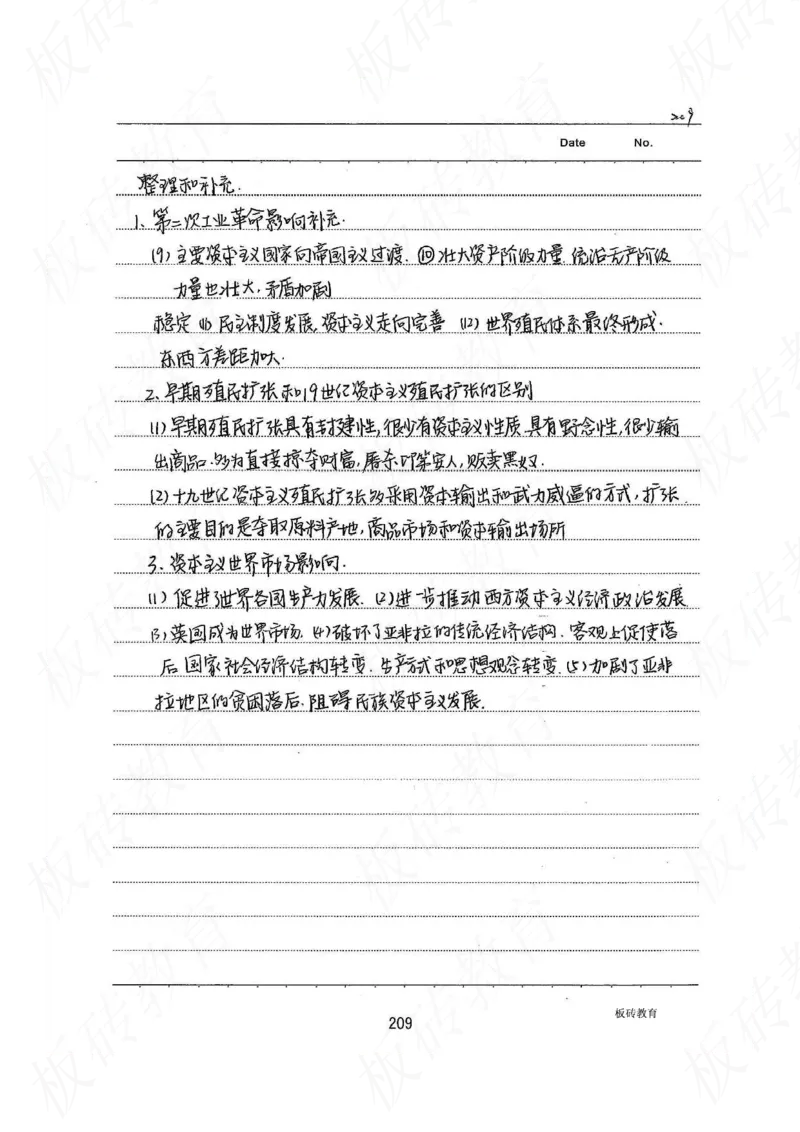 209
Date No.
整理和补充.
1、第二次工业革命影响补充.
(9) 主要资本主义国家向帝国主义过渡. ⑩壮大资产阶级力量.统治无产阶级
力量也壮大,矛盾加剧
稳定 (11) 民主制度发展,资本主义走向完善 (12) 世界殖民体系最终形成.
东西方差距加大.
2、早期殖民扩张和19世纪资本主义殖民扩张的区别
(1)早期殖民扩张具有封建性,很少有资本主义性质.具有野念性,很少输
出商品.多为直接掠夺财富,屠杀印第安人,贩卖黑奴.
(2)十九世纪资本主义殖民扩张多采用资本输出和武力威逼的方式,扩张
的主要目的是夺取原料产地,商品市场和资本输出场所
3、资本主义世界市场影响.
(1) 促进了世界各国生产力发展. (2)进一步推动西方资本主义经济政治发展
(3)英国成为世界市场. (4)破坏了亚非拉的传统经济结构.客观上促使落
后国家社会经济结构转变.生产方式和思想观念转变.(5)加剧了亚非
拉地区的贫困落后.阻碍民族资本主义发展.
209
板砖教育